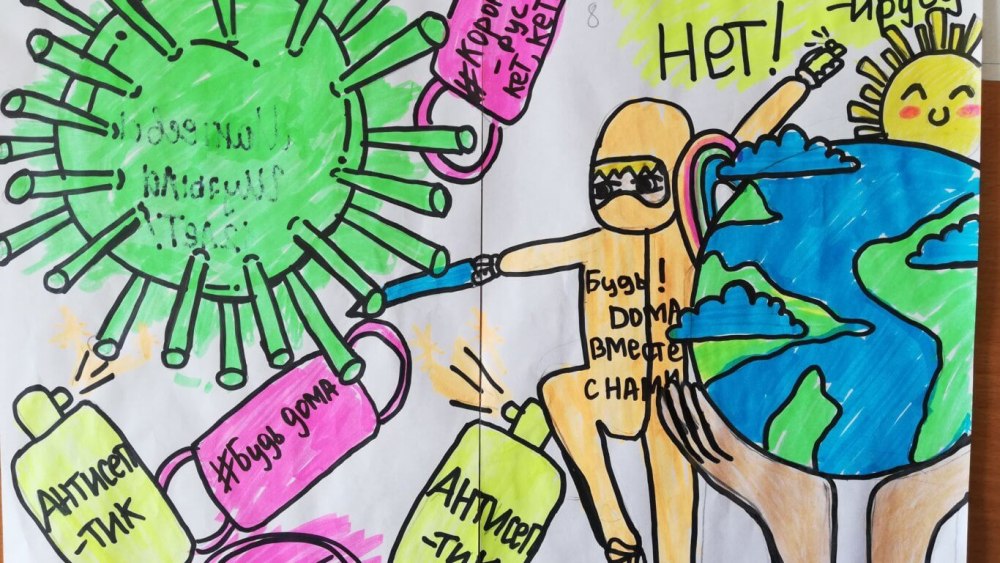 8
#-Коро
-рус
кет, кет
НЕТ!
Будь!
Дома
вместе
с нами
#Будь дома
Антисеп
-тик
Антисеп
-тик